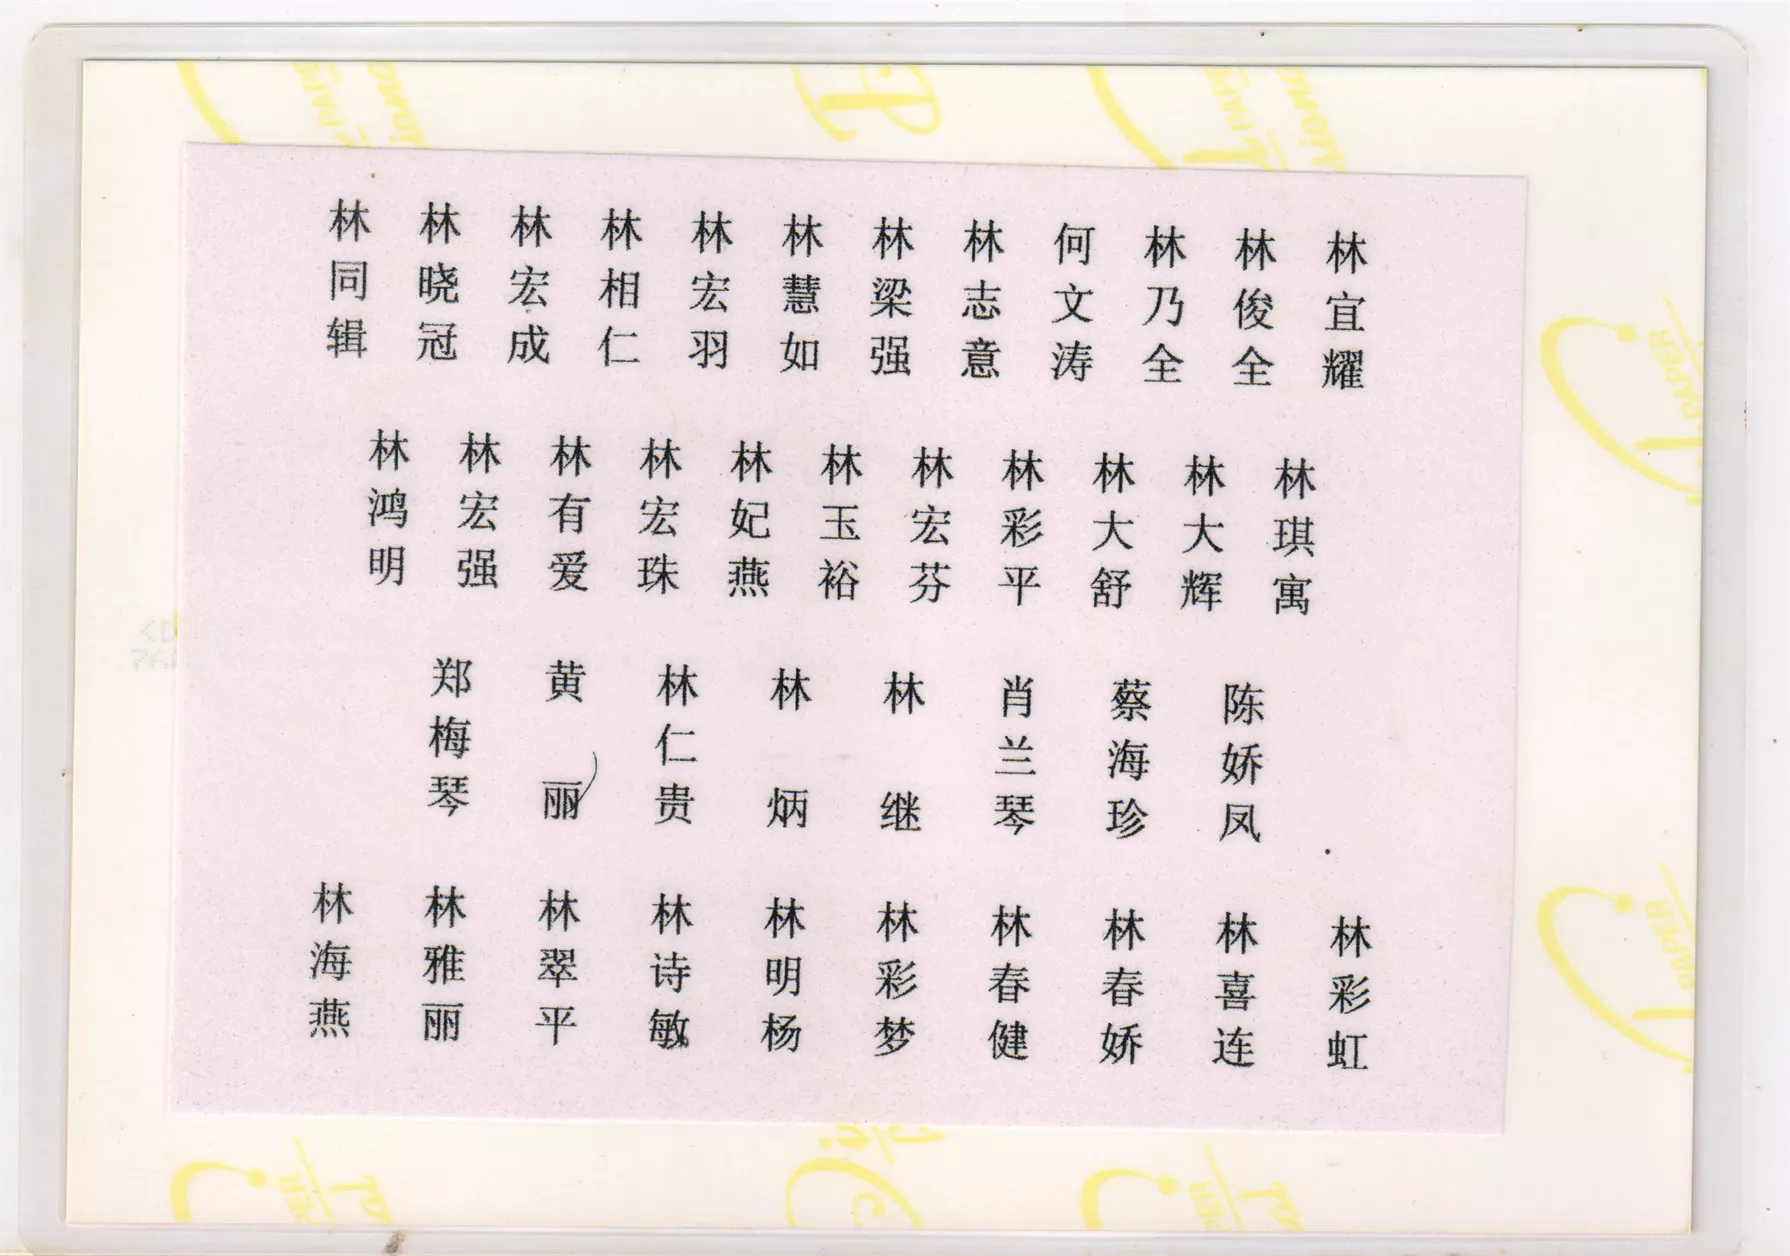 林同辑
林晓冠
林宏成
林相仁
林宏羽
林慧如
林梁强
林志意
何文涛
林乃全
林俊全
林宜耀
林鸿明
林宏强
林有爱
林宏珠
林妃燕
林玉裕
林宏芬
林彩平
林大舒
林大辉
林琪寓
郑梅琴
黄丽
林仁贵
林炳
林继
肖兰琴
蔡海珍
陈娇凤
林海燕
林雅丽
林翠平
林诗敏
林明杨
林彩梦
林春健
林春娇
林喜连
林彩虹
PAPER
PAPER
PAPER
PAPER